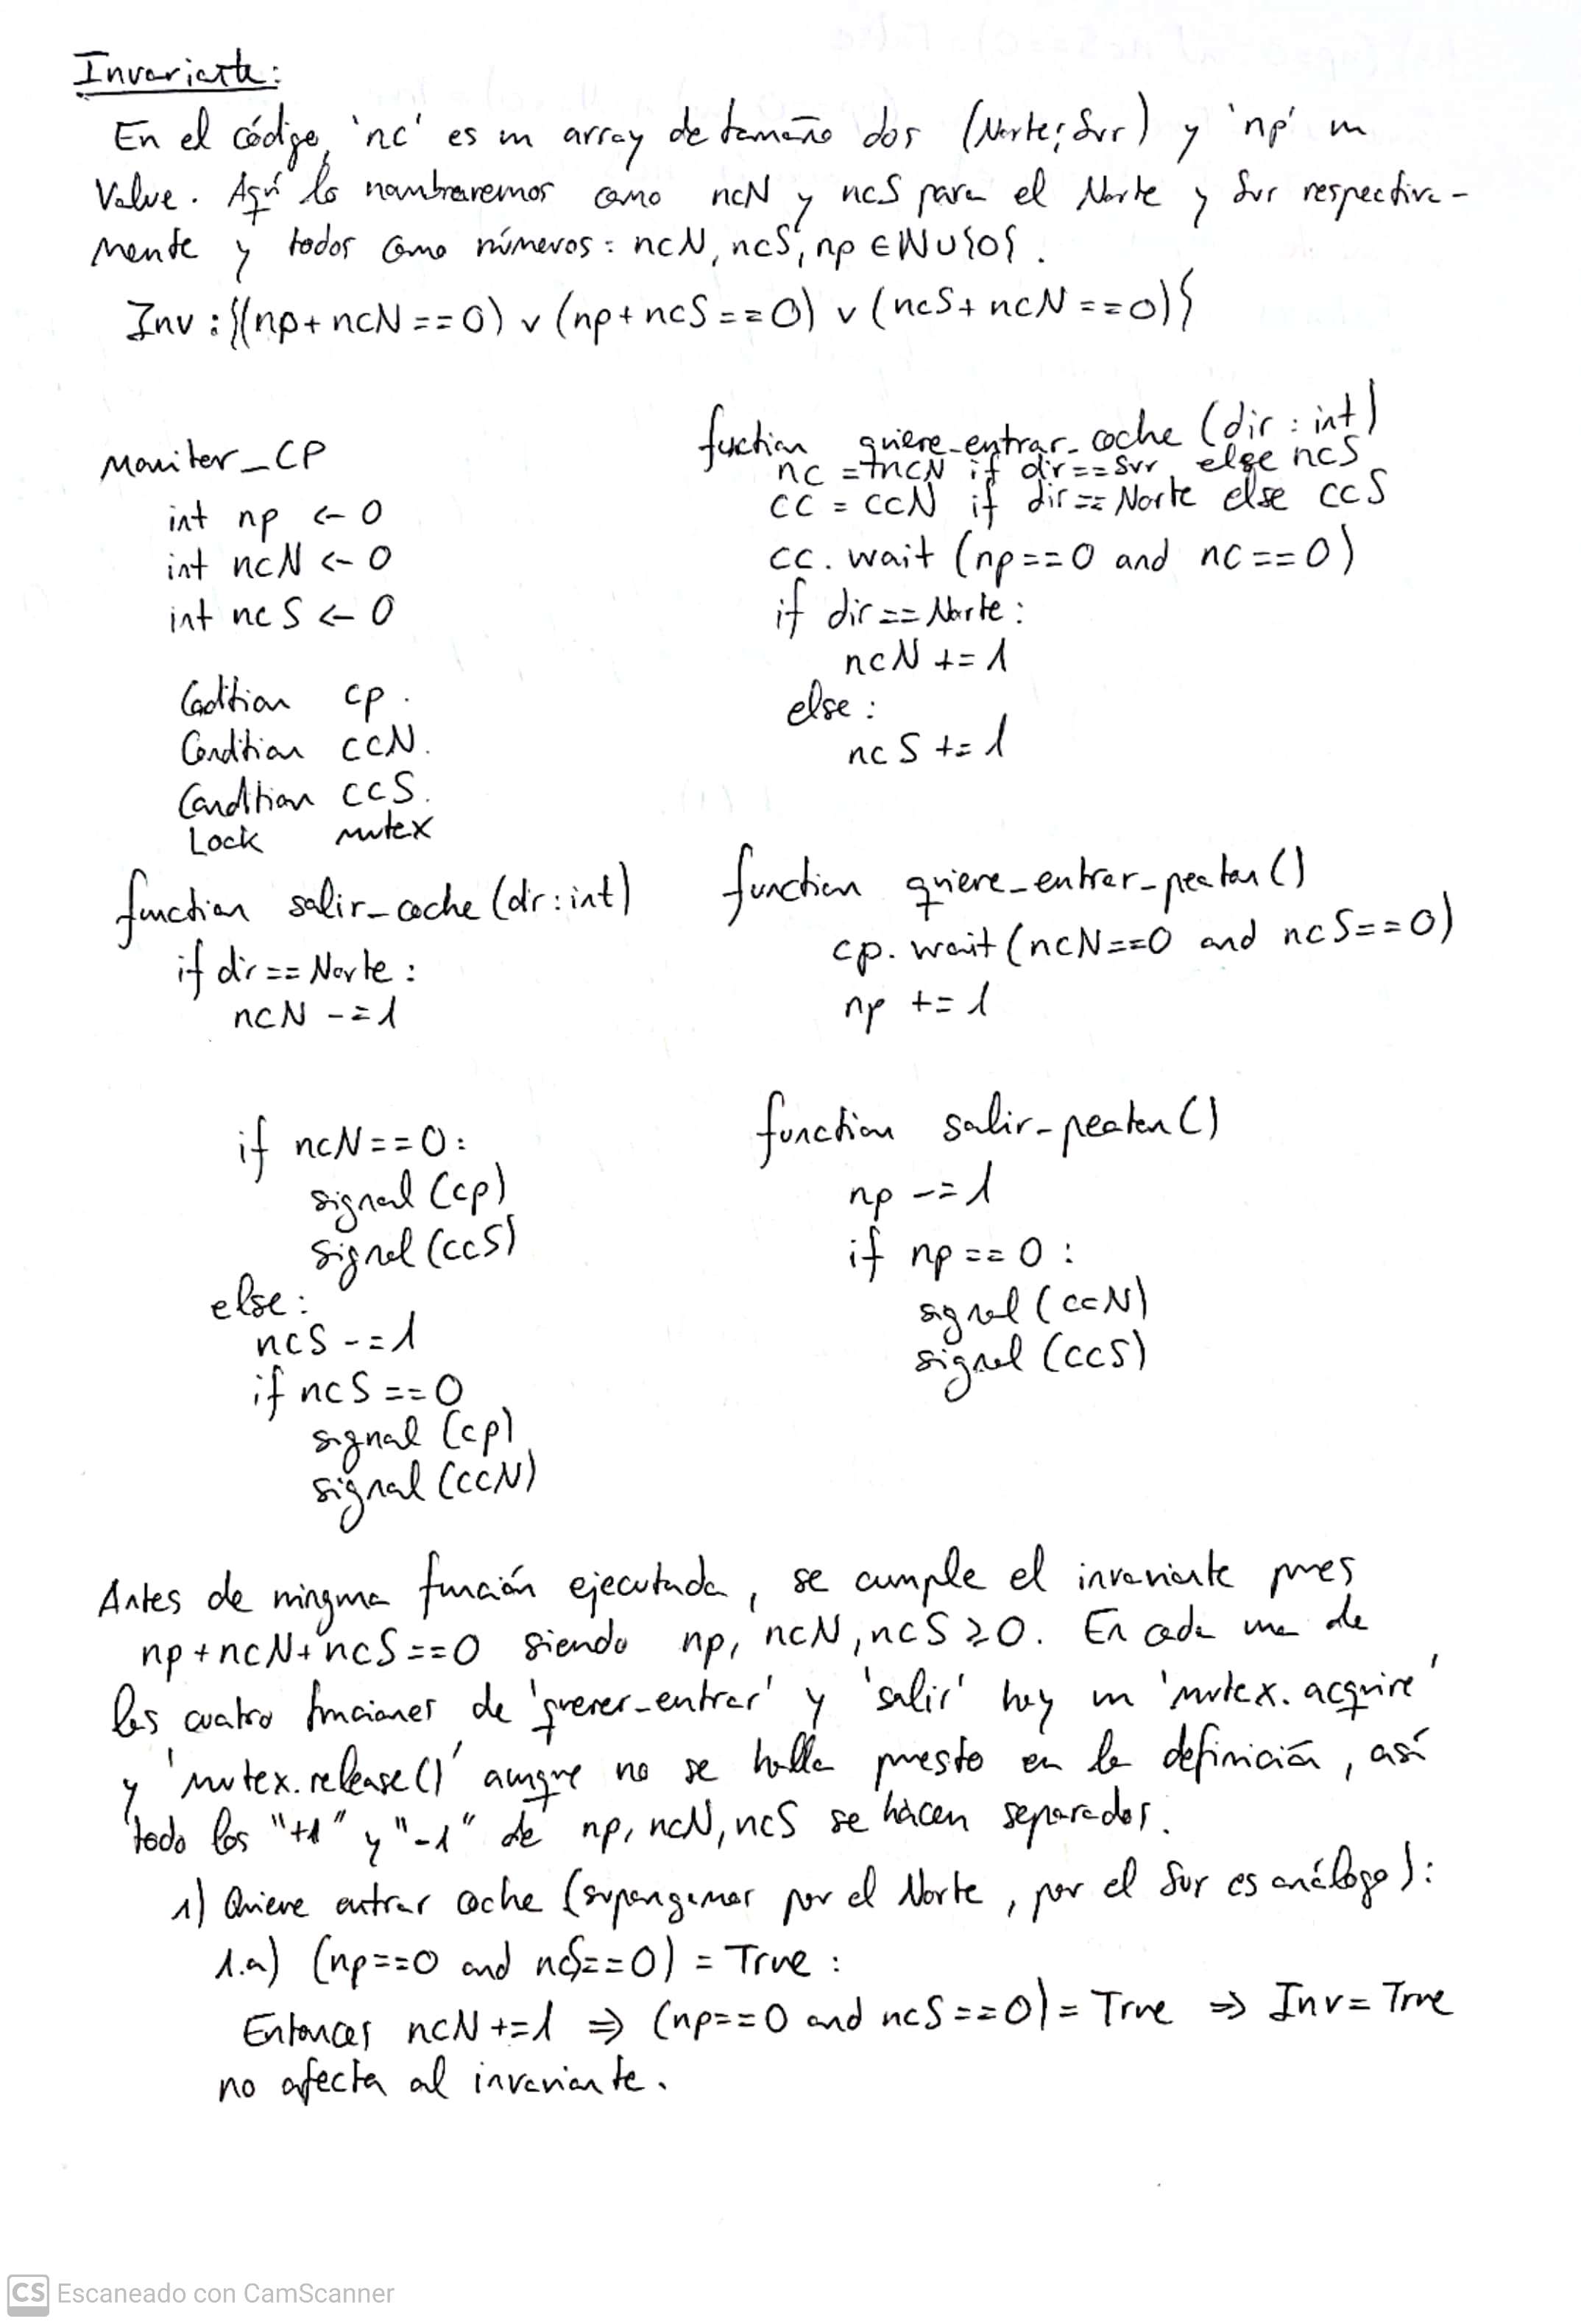 Invariante:
En el código, 'nc' es un array de tamaño dos (Norte; Sur) y 'np' un
Value. Aquí lo nombraremos como ncN y ncS para el Norte y Sur respectiva-
mente y todos como números: ncN, ncS, np ∈ ℕ∪{0}.
Inv : {(np+ncN==0) ∨ (np+ncS==0) ∨ (ncS+ncN==0)}
Monitor_CP
int np <- 0
int ncN <- 0
int ncS <- 0
Condition cp.
Condition ccN.
Condition ccS.
Lock mutex
function salir_coche (dir: int)
if dir == Norte :
ncN -= 1
if ncN == 0 :
signal (cp)
signal (ccS)
else :
ncS -= 1
if ncS == 0
signal (cp)
signal (ccN)
fuction quiere_entrar_coche (dir : int)
nc = ncN if dir == Sur else ncS
cc = ccN if dir == Norte else ccS
cc. wait (np==0 and nc==0)
if dir == Norte :
ncN += 1
else :
ncS += 1
function quiere_entrar_peaton ()
cp. wait (ncN==0 and ncS==0)
np += 1
function salir_peaton ()
np -= 1
if np == 0 :
signal (ccN)
signal (ccS)
Antes de ninguna función ejecutada, se cumple el invariante pues
np+ncN+ncS==0 siendo np, ncN, ncS ≥ 0. En cada una de
las cuatro funciones de 'querer_entrar' y 'salir' hay un 'mutex. acquire'
y 'mutex. release()' aunque no se halla puesto en la definición, así
todo los "+1" y "-1" de np, ncN, ncS se hacen separados.
1) Quiere entrar coche (supongamos por el Norte, por el Sur es análogo) :
1.a) (np==0 and ncS==0) = True :
Entonces ncN += 1 ⇒ (np==0 and ncS==0) = True ⇒ Inv = True
no afecta al invariante.
CS Escaneado con CamScanner